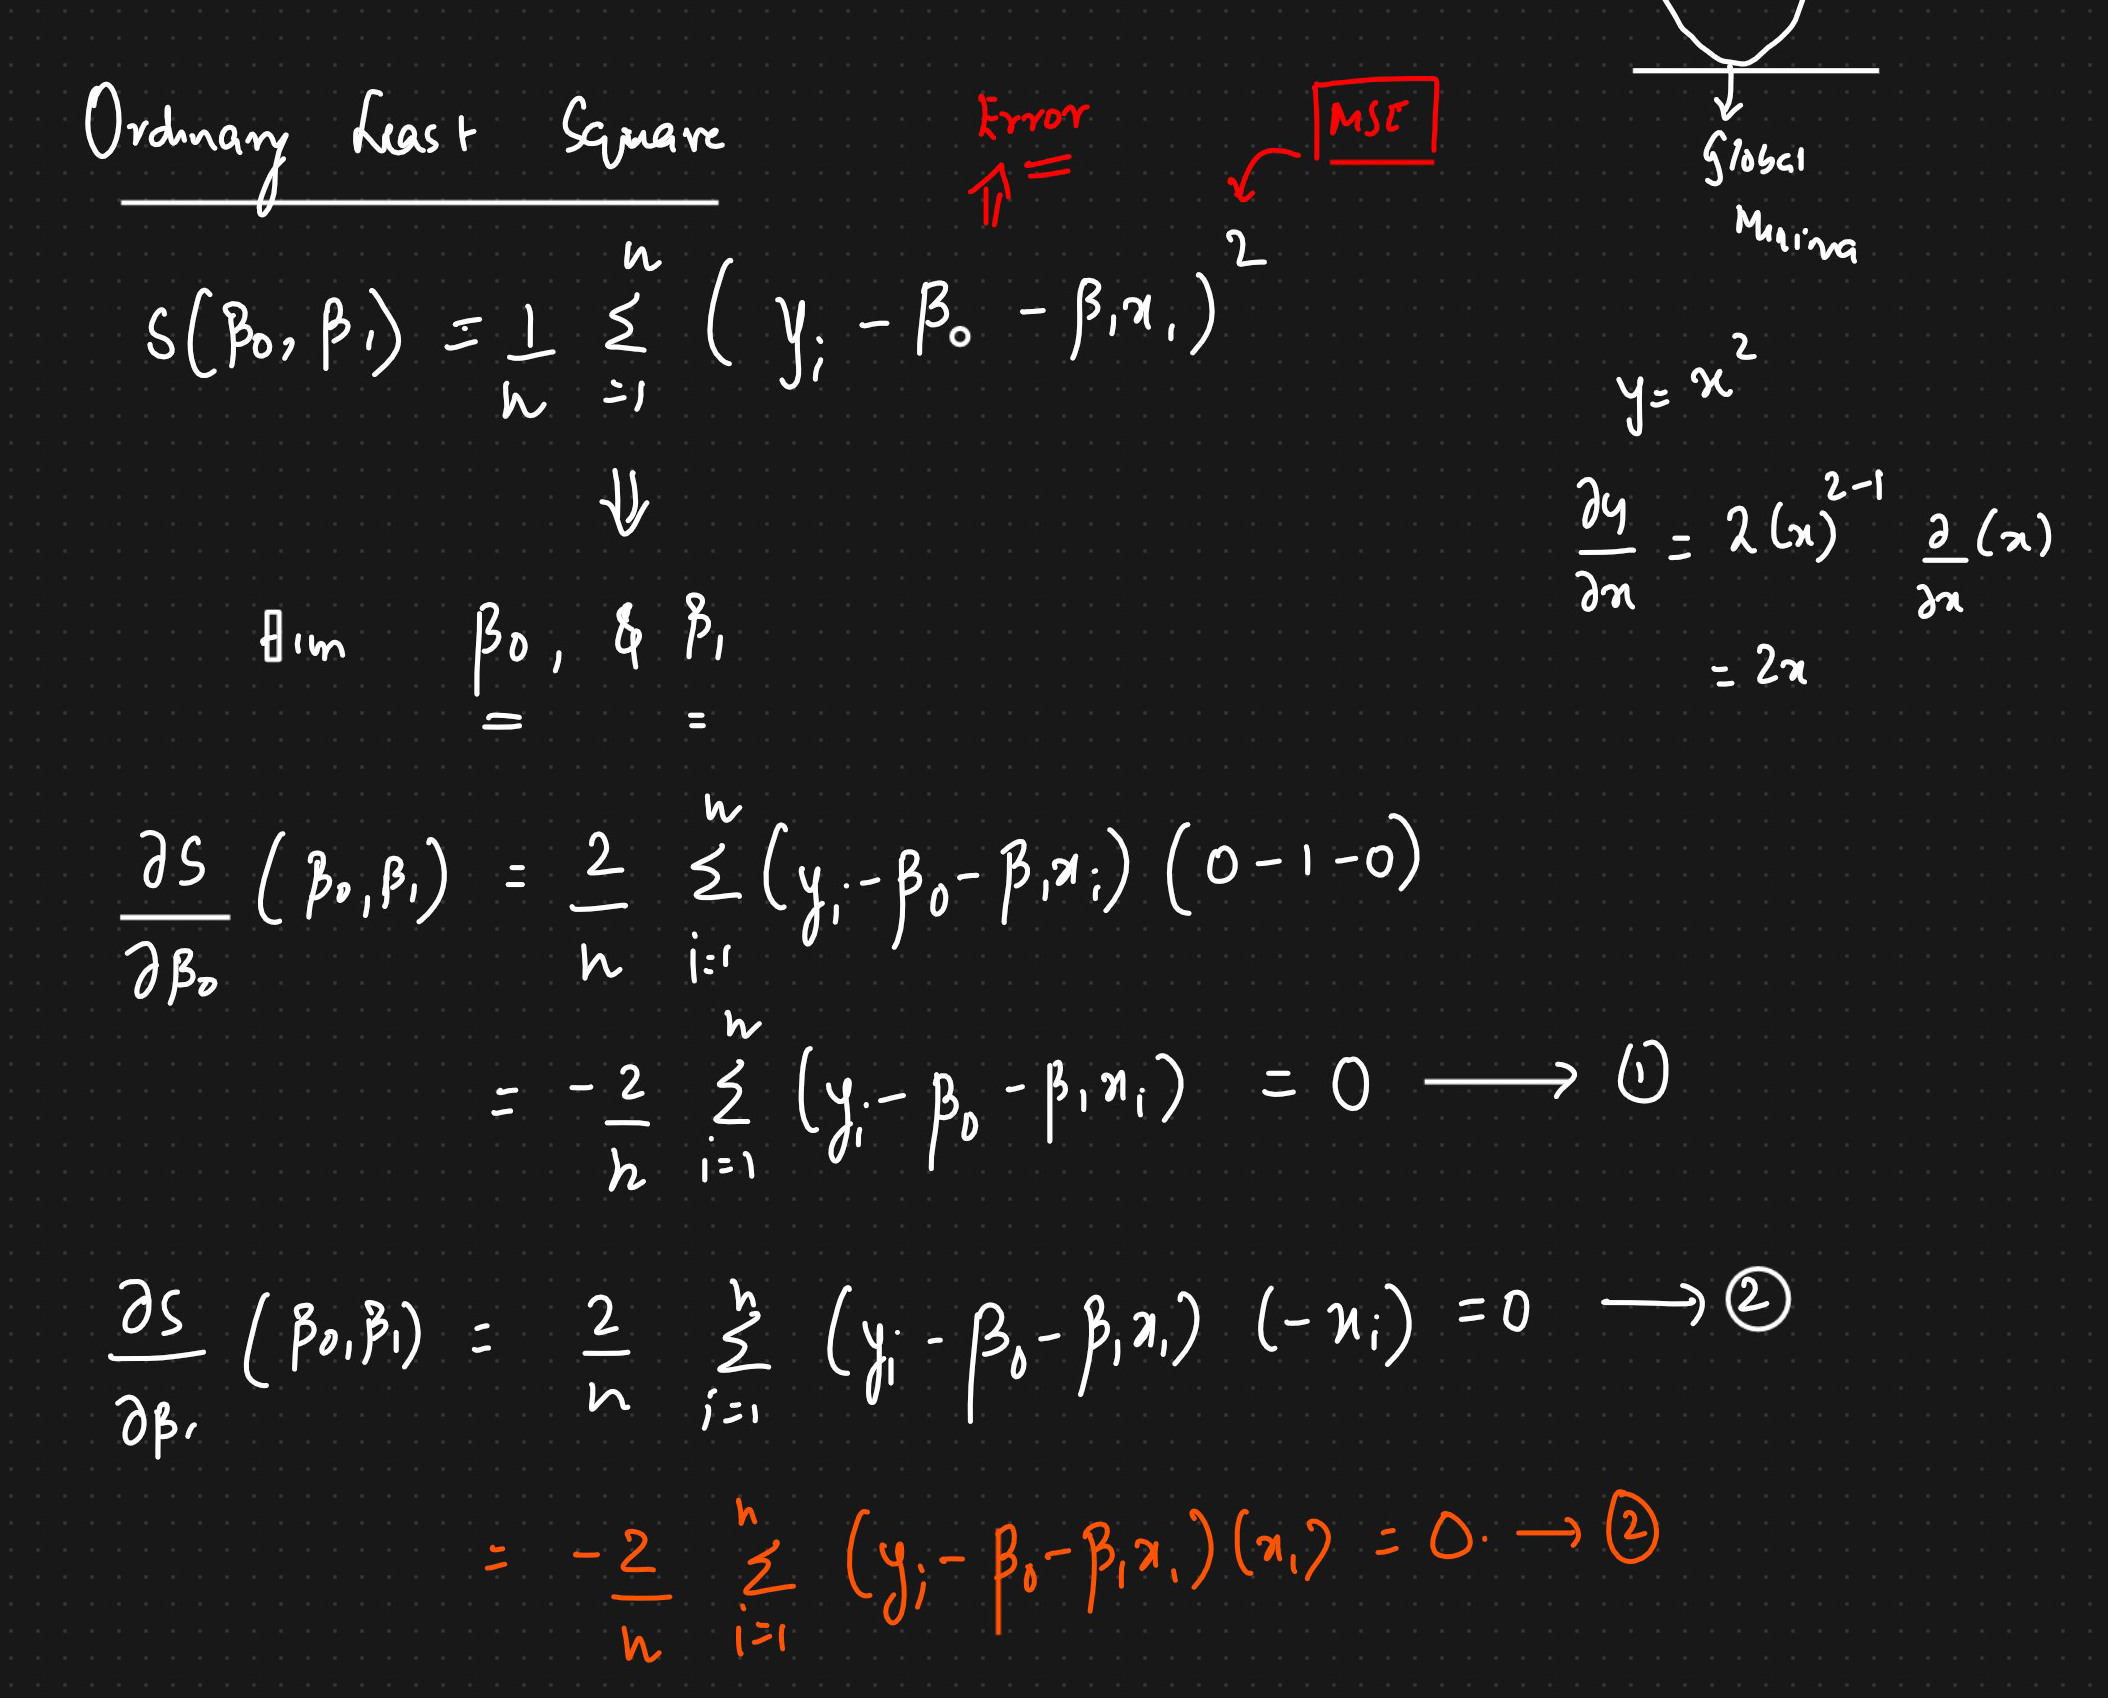 Ordinary Least Square
Error
MSE
Global
Minima
S(β₀, β₁) = 1/n Σ_{i=1}^{n} (yᵢ - β₀ - β₁xᵢ)²
y = x²
∂y/∂x = 2(x)²⁻¹ ∂/∂x (x)
= 2x
Aim β₀, & β₁
∂S/∂β₀ (β₀, β₁) = 2/n Σ_{i=1}^{n} (yᵢ - β₀ - β₁xᵢ) (0 - 1 - 0)
= -2/n Σ_{i=1}^{n} (yᵢ - β₀ - β₁xᵢ) = 0 → ①
∂S/∂β₁ (β₀, β₁) = 2/n Σ_{i=1}^{n} (yᵢ - β₀ - β₁xᵢ) (-xᵢ) = 0 → ②
= -2/n Σ_{i=1}^{n} (yᵢ - β₀ - β₁xᵢ)(xᵢ) = 0. → ②